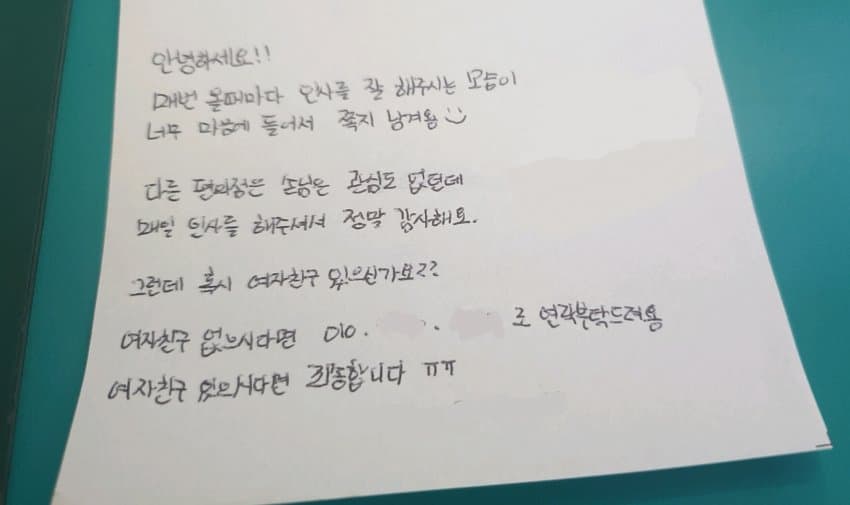 안녕하세요!!
매번 올때마다 인사를 잘 해주시는 모습이
너무 마음에 들어서 쪽지 남겨용
다른 편의점은 손님은 관심도 없던데
매일 인사를 해주셔서 정말 감사해요.
그런데 혹시 여자친구 있으신가요??
여자친구 없으시다면 010. . 로 연락부탁드려용
여자친구 있으시다면 죄송합니다 ㅠㅠ